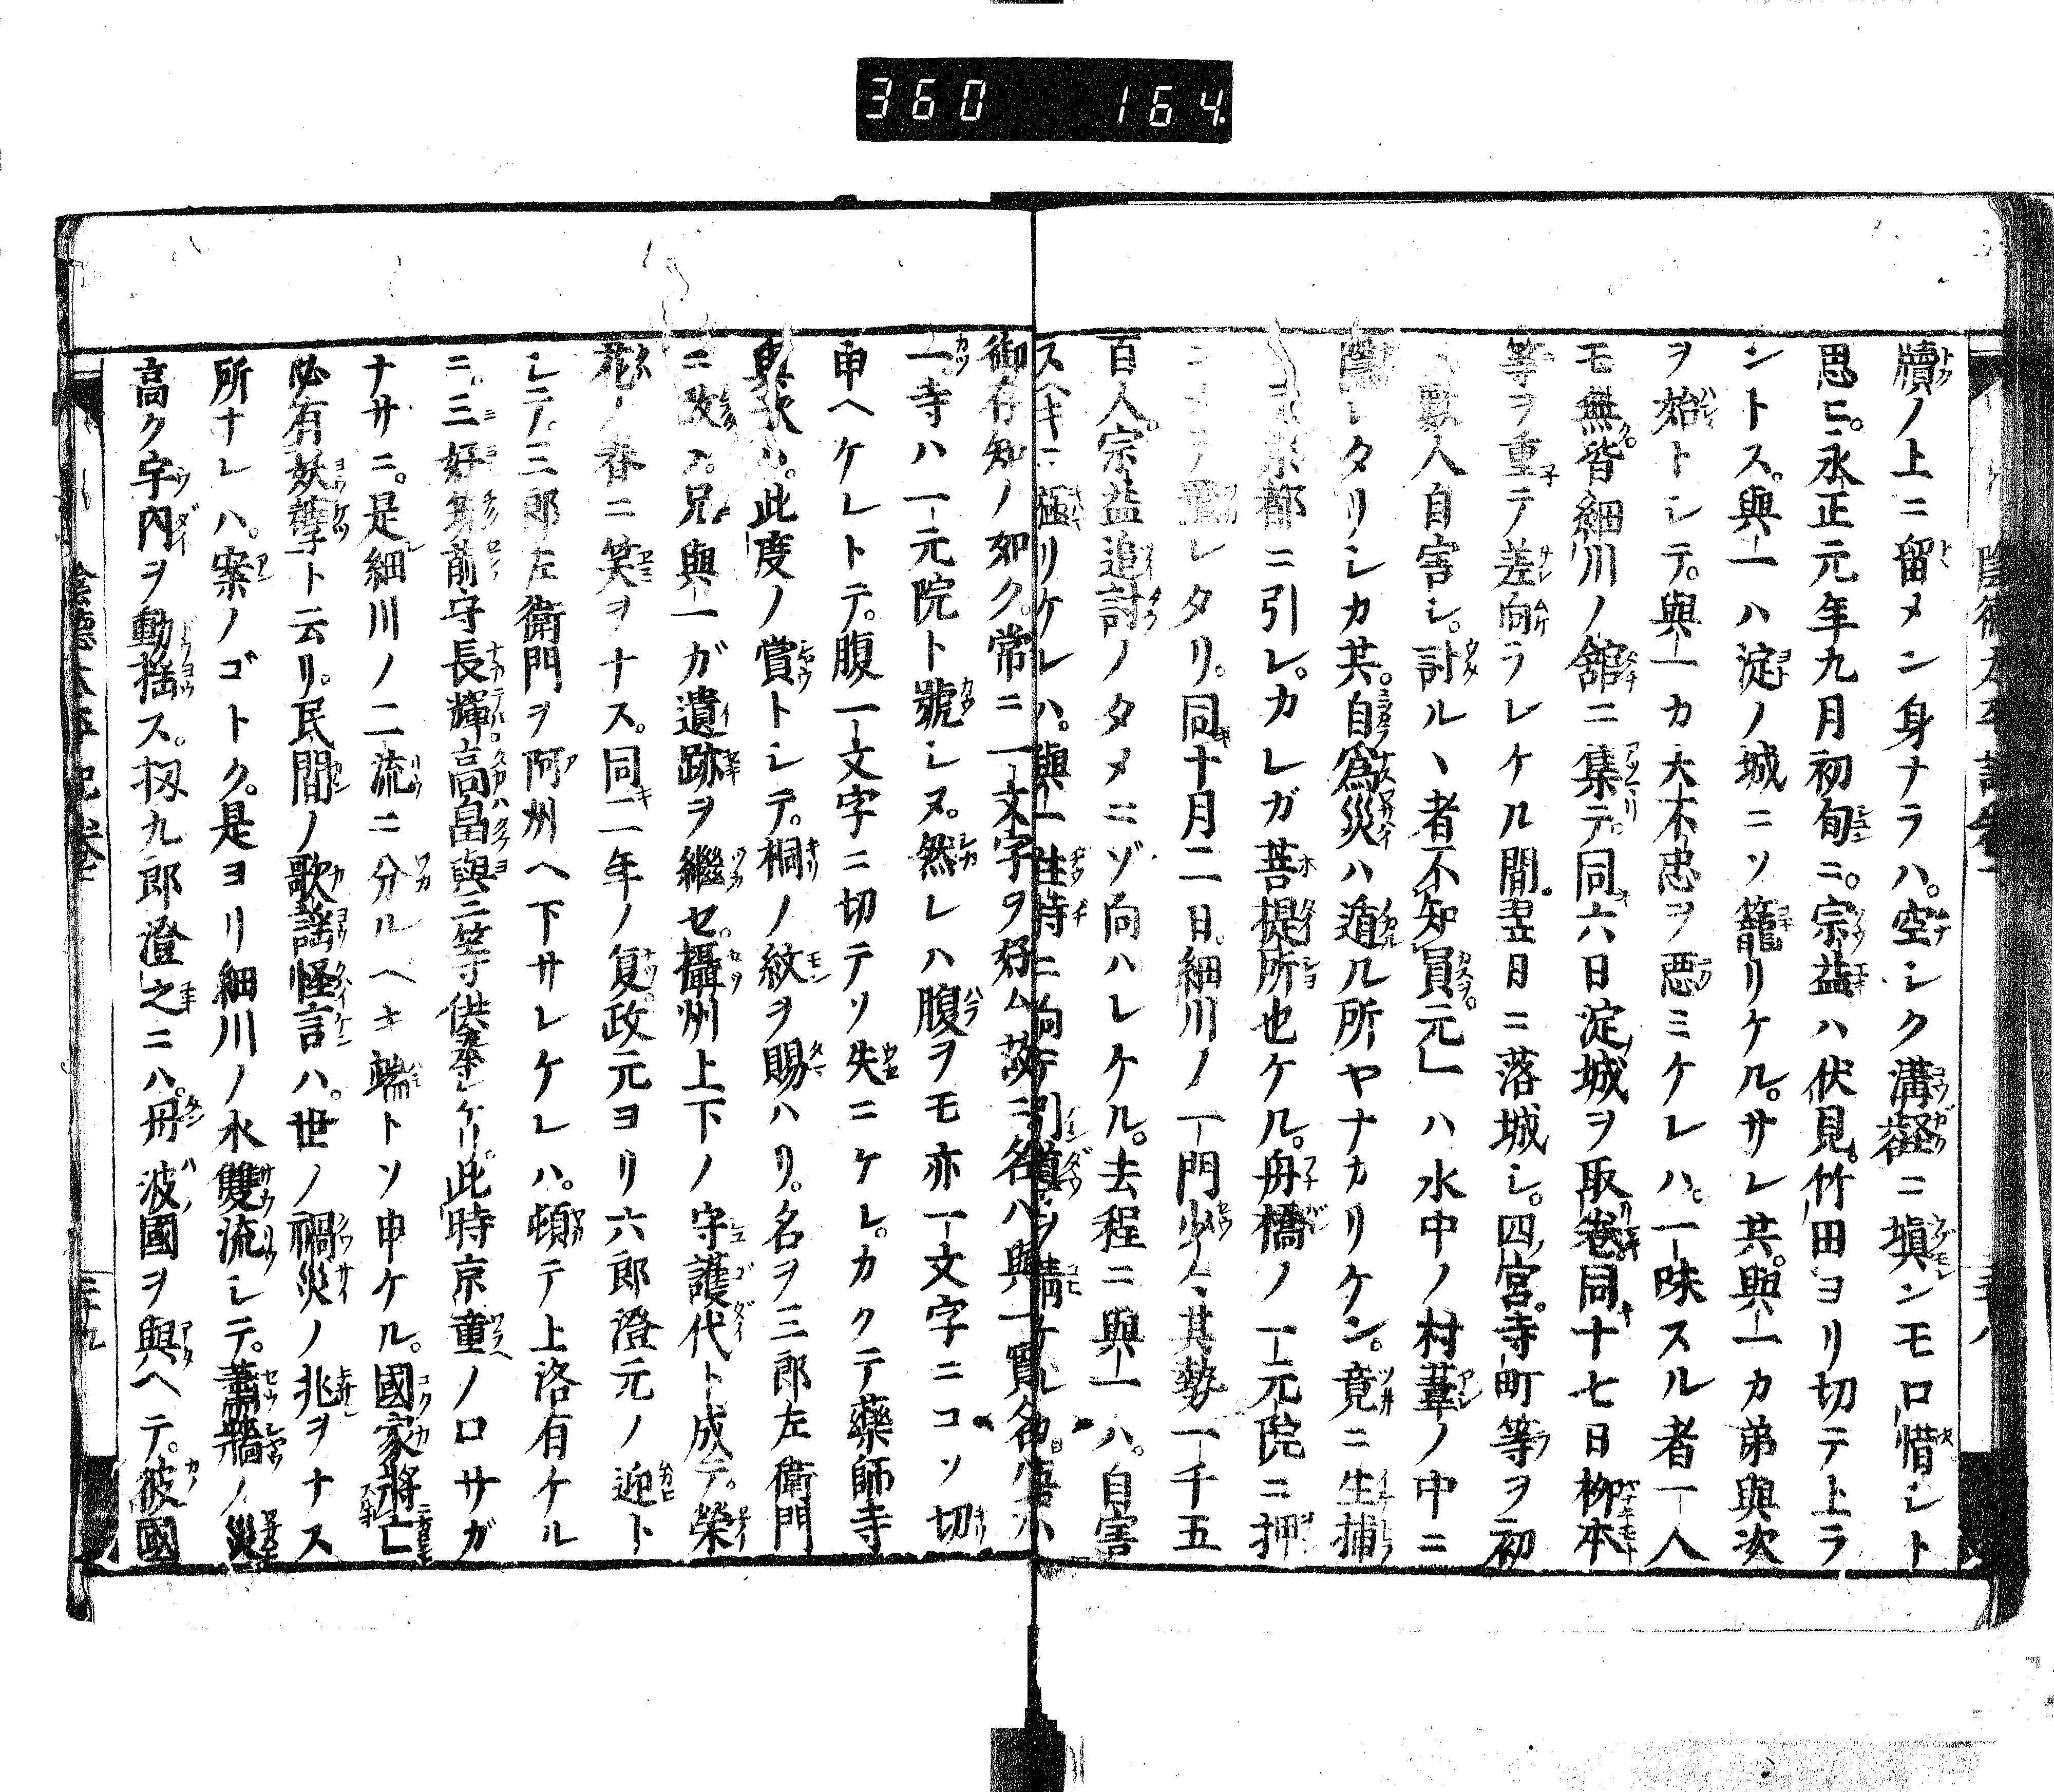 360 164
牘ノ上ニ留メン身ナラハ。空シク溝壑ニ塡ンモロ惜シト
思ヒ。永正元年九月初旬ニ。宗益ハ伏見。竹田ヨリ切テ上ラ
ントス。與一ハ淀ノ城ニソ籠リケル。サレ共。與一カ弟與次
ヲ始トシテ。與一カ大不忠ヲ惡ミケレハ。一味スル者一人
モ無。皆細川ノ舘ニ集テ。同六日淀城ヲ取卷。同十七日柳本
等ヲ重テ差向ラレケル間。翌日ニ落城シ。四宮。寺町等ヲ初
數人自害シ。討ルヽ者不知員。元一ハ水中ノ村葦ノ中ニ
隱レタリシカ共。自爲災ハ遁ル所ヤナカリケン。竟ニ生捕
京都ニ引レ。カレガ菩提所也ケル。舟橋ノ一元院ニ押
レタリ。同十月二日。細川ノ一門少々其勢一千五
百人。宗益追討ノタメニゾ向ハレケル。去程ニ與一ハ。自害
スヘキニ極リケレハ。與一住持ニ向テ引導ヲ請ケル
御存知ノ如ク。常ニ一文字ヲ好ム故ニ名ハ與一實名
一。寺ハ一元院ト號シヌ。然レハ腹ヲモ亦一文字ニコソ切
申ヘケレトテ。腹一文字ニ切テソ失ニケレ。カクテ藥師寺
與次ハ。此度ノ賞トシテ。桐ノ紋ヲ賜ハリ。名ヲ三郎左衛門
ニ改メ。兄與一ガ遺跡ヲ繼セ。攝州上下ノ守護代ト成テ。榮
花ノ春ニ笑ヲナス。同二年ノ夏。政元ヨリ六郎澄元ノ迎ト
シテ。三郎左衛門ヲ阿州ヘ下サレケレハ。頓テ上洛有ケル
ニ。三好筑前守長輝。高畠與三等供奉シケリ。此時京童ノロサガ
ナサニ。是細川ノ二流ニ分ルヘキ端トソ申ケル。國家將亡
必有妖孽ト云リ。民間ノ歌謡怪言ハ。世ノ禍災ノ兆ヲナス
所ナレハ。案ノゴトク。是ヨリ細川ノ水雙流シテ。蕭牆ノ災
高ク宇内ヲ動搖ス。扨九郎澄之ニハ。丹波國ヲ與ヘテ。彼國